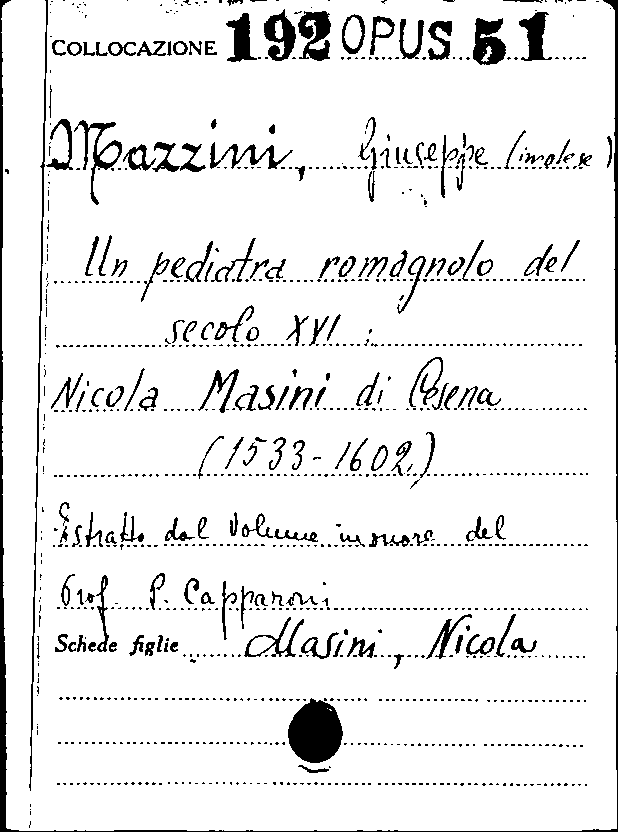 COLLOCAZIONE 192 OPUS 51
Mazzini, Giuseppe (imolese)
Un pediatra romagnolo del
secolo XVI :
Nicola Masini di Cesena
(1533-1602.)
Estratto dal Volume in onore del
Prof. P. Capparoni
Schede figlie Masini, Nicola